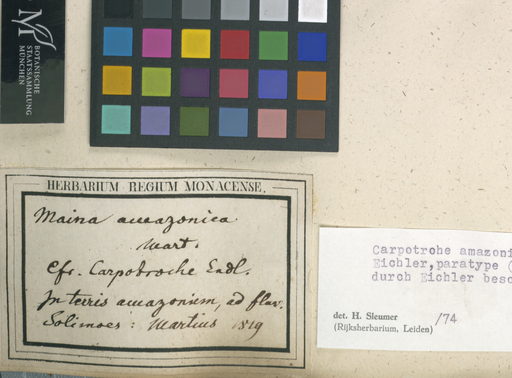 BOTANISCHE
STAATSSAMMLUNG
MÜNCHEN
HERBARIUM REGIUM MONACENSE.
Maina amazonica
Mart.
Cfr. Carpotroche Endl.
In terris amazonium, ad fluv.
Solimoes: Martius 1819
Carpotroche amazoni
Eichler, paratype (
durch Eichler besc
det. H. Sleumer /74
(Rijksherbarium, Leiden)